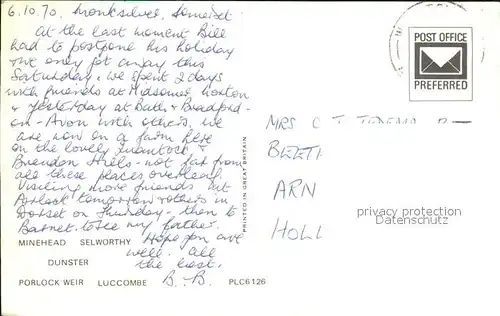 6.10.70. Monksilver, Somerset.
At the last moment Bill
had to postpone his holiday
& we only got away this
Saturday. We spent 2 days
with friends at Midsomer Norton
& yesterday at Bath & Bradford-
on-Avon with others. We
are now on a farm here
on the lovely Quantock &
Brendon Hills - not far from
all these places overleaf.
Visiting more friends at
Porlock tomorrow & others in
Dorset on Thursday - then to
Barnet to see my father.
Hope you are
well. All
the best.
B. B.
MINEHEAD SELWORTHY
DUNSTER
PORLOCK WEIR LUCCOMBE PLC6126
PRINTED IN GREAT BRITAIN
POST OFFICE
PREFERRED
MRS C
BEETH
ARN
HOLL
privacy protection
www.oldthing.de